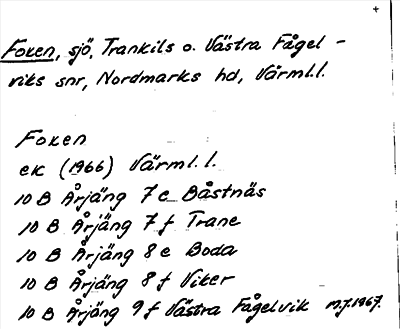 Foxen, sjö, Trankils o. Västra Fågel-
viks snr, Nordmarks hd, Värml.l.
Foxen
ek (1966) Värml.l.
10 B Årjäng 7 e Båstnäs
10 B Årjäng 7 f Trane
10 B Årjäng 8 e Boda
10 B Årjäng 8 f Viker
10 B Årjäng 9 f Västra Fågelvik